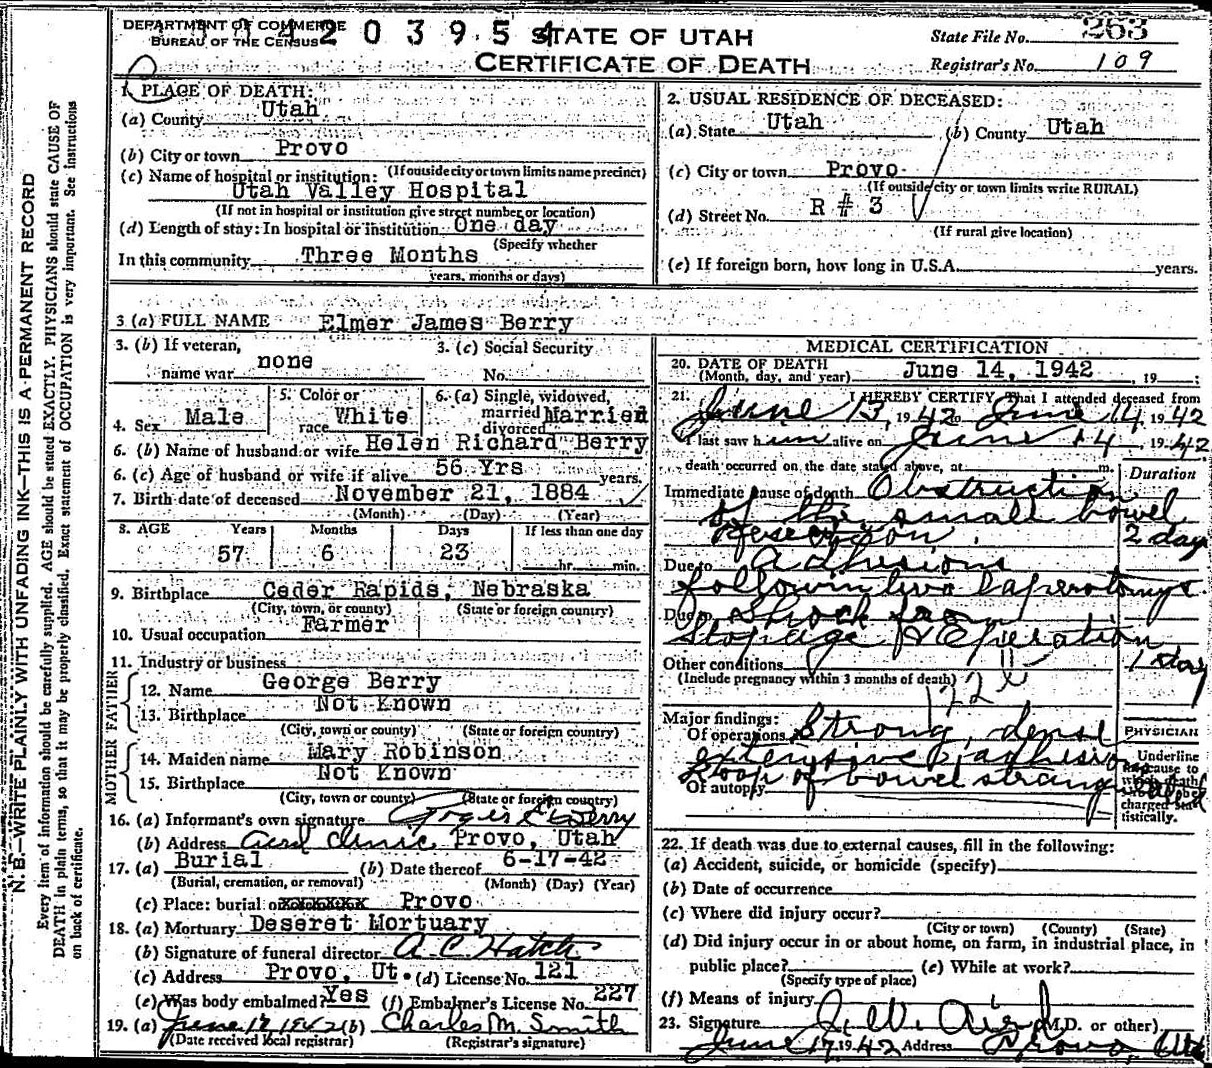 DEPARTMENT OF COMMERCE
BUREAU OF THE CENSUS
STATE OF UTAH
CERTIFICATE OF DEATH
State File No. 263
Registrar's No. 109
N. B.—WRITE PLAINLY WITH UNFADING INK—THIS IS A PERMANENT RECORD
Every item of information should be carefully supplied. AGE should be stated EXACTLY. PHYSICIANS should state CAUSE OF
DEATH in plain terms, so that it may be properly classified. Exact statement of OCCUPATION is very important. See instructions
on back of certificate.
1. PLACE OF DEATH:
(a) County Utah
(b) City or town Provo
(If outside city or town limits name precinct)
(c) Name of hospital or institution:
Utah Valley Hospital
(If not in hospital or institution give street number or location)
(d) Length of stay: In hospital or institution One day
(Specify whether
In this community Three Months
years, months or days)
2. USUAL RESIDENCE OF DECEASED:
(a) State Utah (b) County Utah
(c) City or town Provo
(If outside city or town limits write RURAL)
(d) Street No. R # 3
(If rural give location)
(e) If foreign born, how long in U.S.A. years.
3 (a) FULL NAME Elmer James Berry
3. (b) If veteran, name war none
3. (c) Social Security No.
4. Sex Male
5. Color or race White
6. (a) Single, widowed, married divorced Married
6. (b) Name of husband or wife Helen Richard Berry
6. (c) Age of husband or wife if alive 56 Yrs years.
7. Birth date of deceased November 21, 1884
(Month) (Day) (Year)
8. AGE Years Months Days If less than one day
57 6 23 hr. min.
9. Birthplace Ceder Rapids, Nebraska
(City, town, or county) (State or foreign country)
10. Usual occupation Farmer
11. Industry or business
FATHER
12. Name George Berry
13. Birthplace Not Known
(City, town or county) (State or foreign country)
MOTHER
14. Maiden name Mary Robinson
15. Birthplace Not Known
(City, town or county) (State or foreign country)
16. (a) Informant's own signature Berry
(b) Address Aird Clinic Provo, Utah
17. (a) Burial (b) Date thereof 6-17-42
(Burial, cremation, or removal) (Month) (Day) (Year)
(c) Place: burial or xxxxxxxx Provo
18. (a) Mortuary Deseret Mortuary
(b) Signature of funeral director A. C. Hatch
(c) Address Provo, Ut. (d) License No. 121
(e) Was body embalmed? Yes (f) Embalmer's License No. 227
19. (a) June 17 1942 (b) Charles M. Smith
(Date received local registrar) (Registrar's signature)
MEDICAL CERTIFICATION
20. DATE OF DEATH
(Month, day, and year) June 14, 1942, 19 ;
21. I HEREBY CERTIFY, That I attended deceased from
June 13, 1942 to June 14, 1942
I last saw him alive on June 14, 1942
death occurred on the date stated above, at m. Duration
Immediate cause of death Obstruction
of the small bowel
Resection. 2 day
Due to Adhesions
following two laparotomys.
Due to Shock from
Stoppage & Operation
Other conditions 1 day
(Include pregnancy within 3 months of death)
122 b
Major findings:
Of operations Strong, dense
extensive adhesions
Loop of bowel strangulated
Of autopsy
PHYSICIAN
Underline
the cause to
which death
should be
charged sta-
tistically.
22. If death was due to external causes, fill in the following:
(a) Accident, suicide, or homicide (specify)
(b) Date of occurrence
(c) Where did injury occur?
(City or town) (County) (State)
(d) Did injury occur in or about home, on farm, in industrial place, in
public place? (e) While at work?
(Specify type of place)
(f) Means of injury
23. Signature J. W. Aird (M.D. or other)
June 17, 1942 Address Provo, Utah